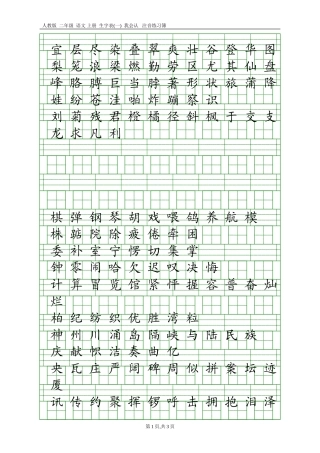 人教版 二年级 语文 上册 生字表(一) 我会认 注音练习簿
宜 层 尽 染 叠 翼 爽 壮 谷 登 华 图
梨 笔 浪 梁 燃 勤 劳 甚 其 够 郎
峰 胳 膊 巨 当 步 脖 著 形 状 旅 蒲 隆
姓 纷 苍 注 咱 炸 蹦 察 识
刘 菊 残 君 橙 橘 枫 于 交 支
龙 求 凡 利
棋 弹 钢 琴 胡 戏 喂 鸽 养 航 模
株 踮 院 除 疲 倦 牵 困
委 补 室 宁 愣 切 集 掌
钟 零 闹 哈 欠 迟 叹 决 悔
计 算 冒 览 馆 紧 怦 握 容 普 奋 灿
烂
柏 纪 纺 织 优 胜 湾 粒
神 州 川 涌 岛 隔 峡 与 陆 民 族
庆 献 帜 洁 奏 曲 亿
央 庄 聚 英 阔 碑 周 似 拼 案 坛 迹
厦
讯 传 约 聚 挥 锣 呼 击 拥 抱 泪 泽
第 1 页,共 3 页